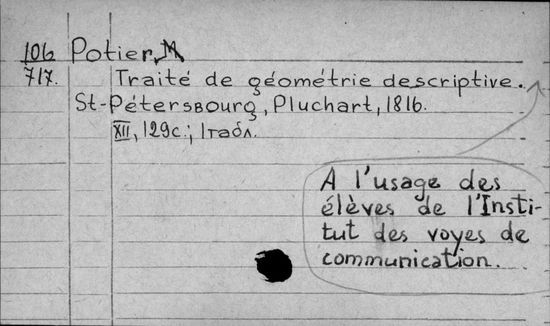 106 Potier, M
717. Traité de géométrie descriptive.
St-Pétersbourg, Pluchart, 1816.
XII, 129c.; 1табл.
A l'usage des
élèves de l'Insti-
tut des voyes de
communication.